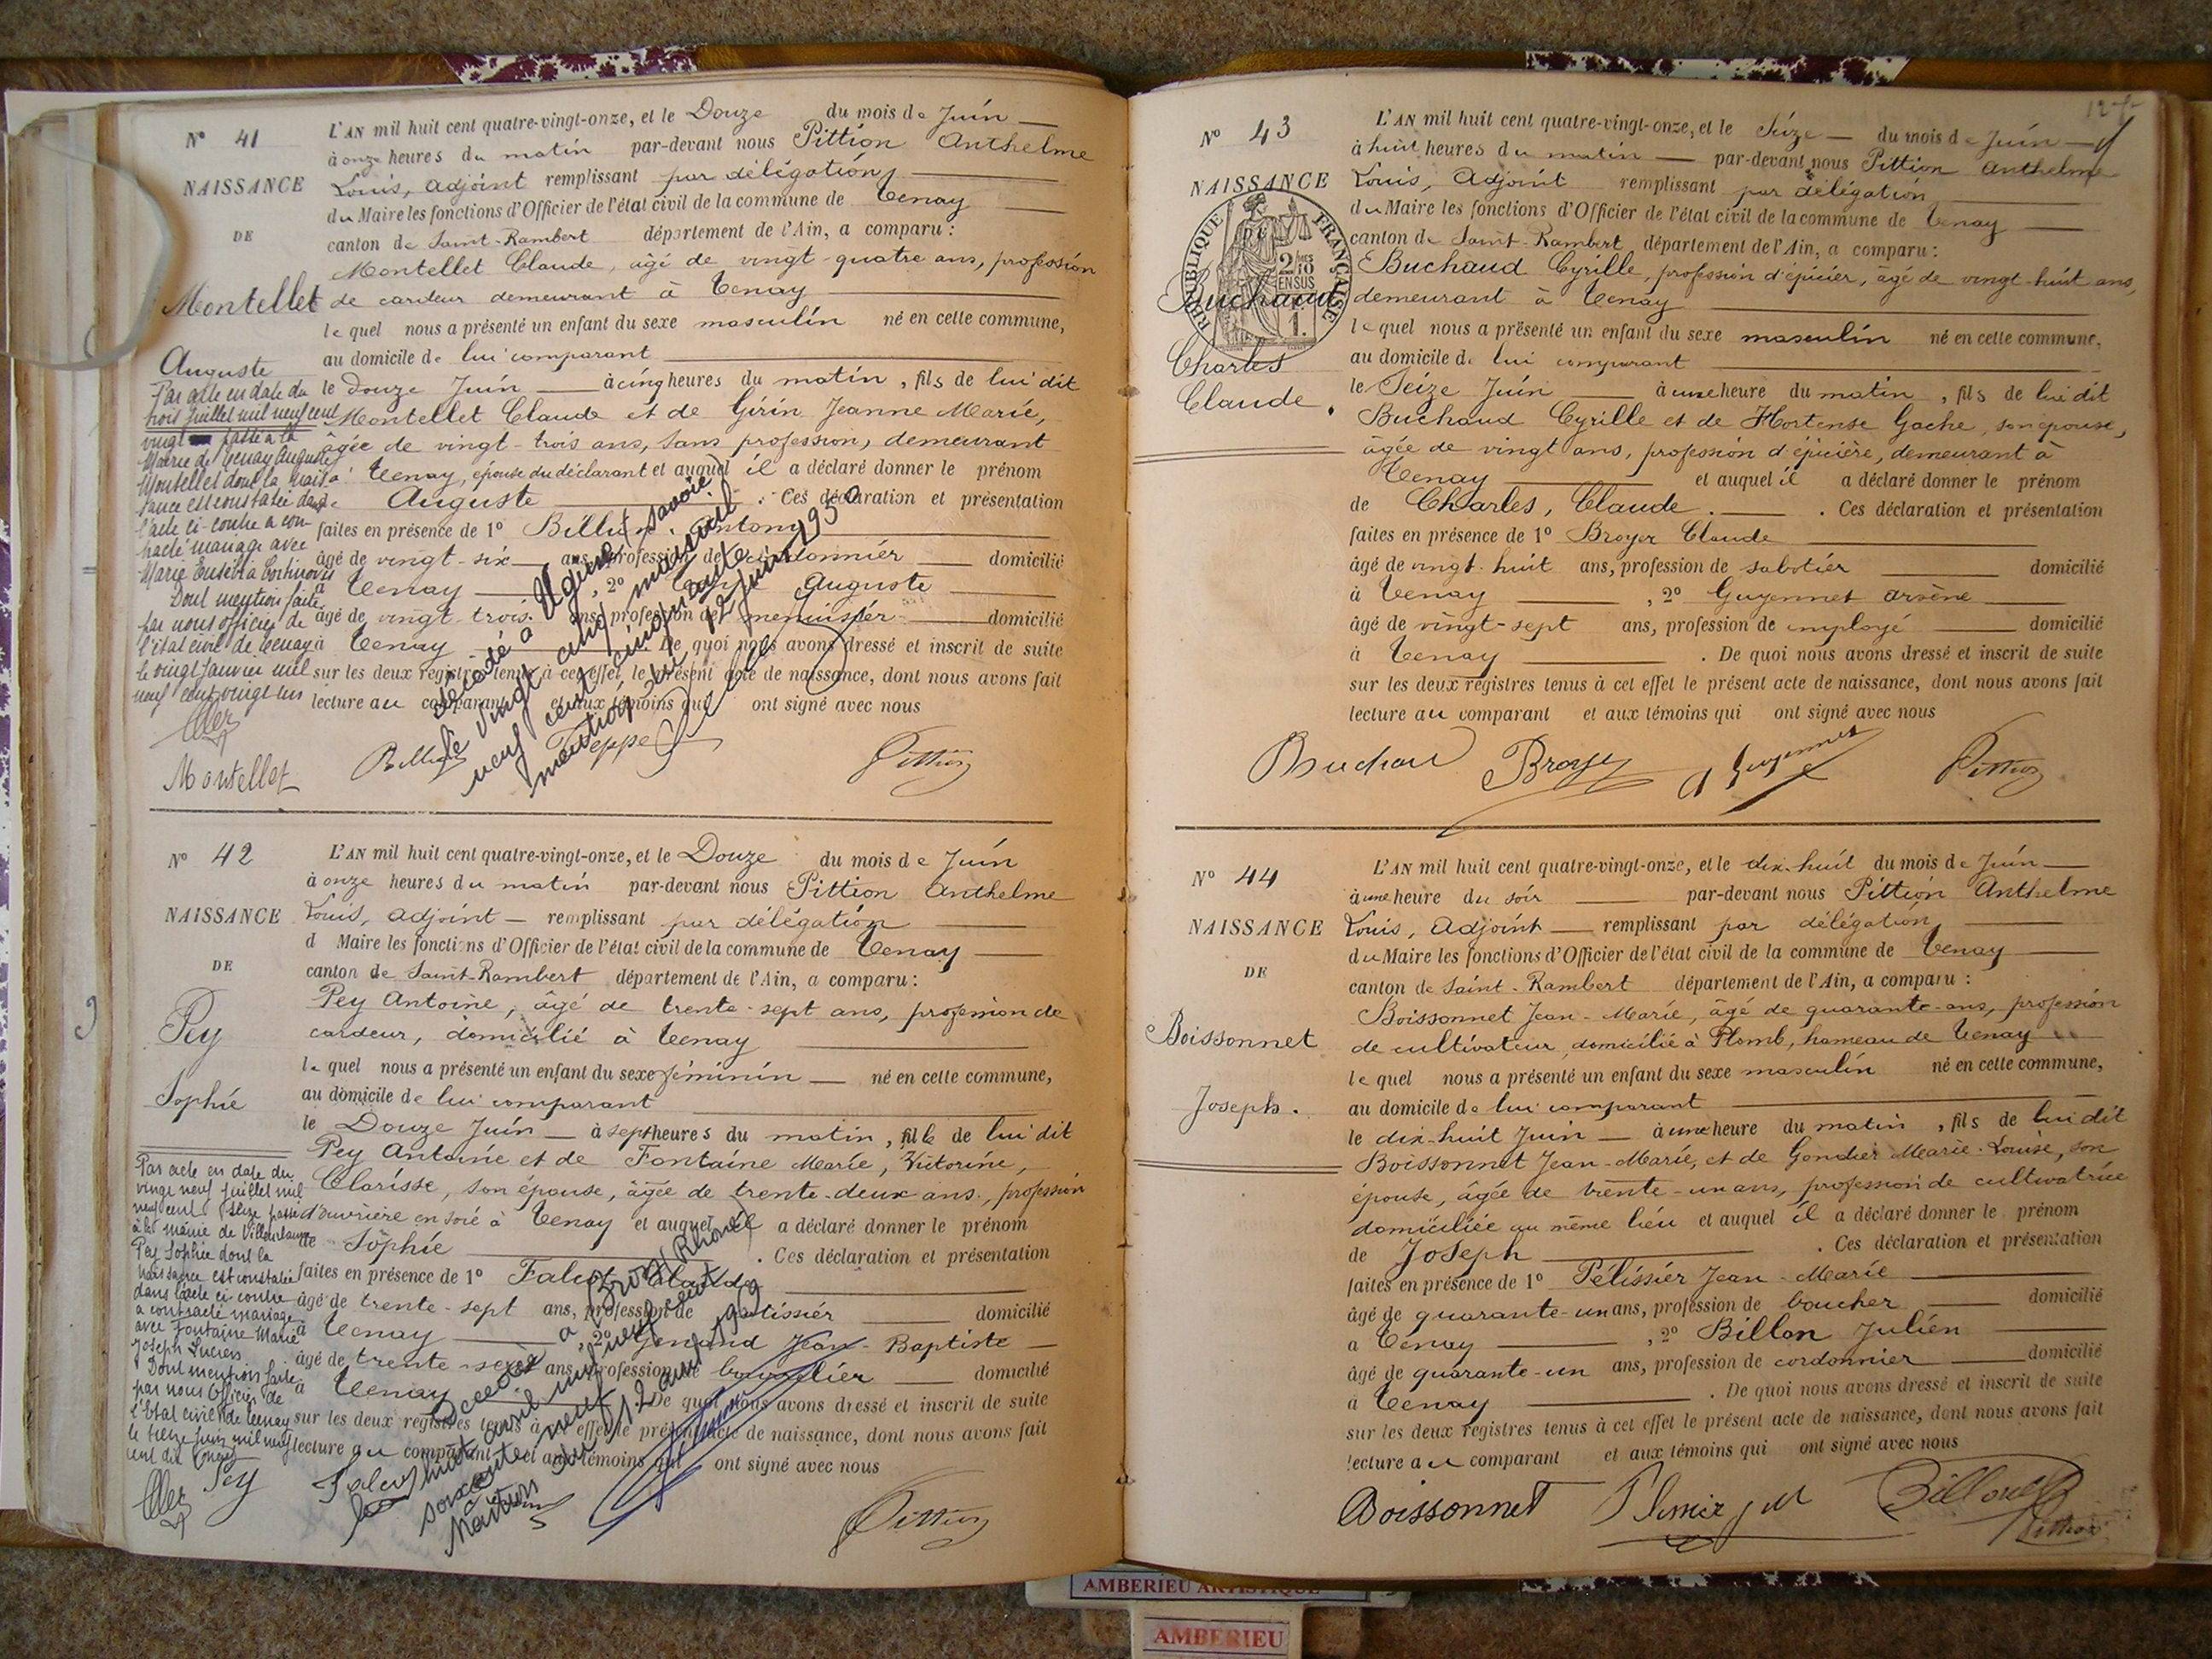 N° 41
NAISSANCE
DE
Montellet
Auguste
L'AN mil huit cent quatre-vingt-onze, et le Douze du mois de Juin
à onze heures du matin par-devant nous Pittion Anthelme
Louis, adjoint remplissant par délégation
du Maire les fonctions d'Officier de l'état civil de la commune de Tenay
canton de Saint-Rambert département de l'Ain, a comparu :
Montellet Claude, âgé de vingt-quatre ans, profession
de cardeur demeurant à Tenay
lequel nous a présenté un enfant du sexe masculin né en cette commune,
au domicile de lui comparant
le Douze Juin à cinq heures du matin, fils de lui dit
Montellet Claude et de Girin Jeanne Marie,
âgée de vingt-trois ans, sans profession, demeurant
à Tenay, épouse du déclarant et auquel il a déclaré donner le prénom
de Auguste . Ces déclaration et présentation
faites en présence de 1° Billion Antony
âgé de vingt-six ans, profession de cordonnier domicilié
à Tenay , 2° Auguste
âgé de vingt-trois ans, profession de menuisier domicilié
à Tenay . De quoi nous avons dressé et inscrit de suite
sur les deux registres tenus à cet effet le présent acte de naissance, dont nous avons fait
lecture au comparant et aux témoins qui ont signé avec nous
Par acte en date du
trois juillet mil neuf cent
vingt passé à la
Mairie de Tenay Auguste
Montellet dont la nais
sance est constatée dans
l'acte ci-contre a con
tracté mariage avec
Marie Eusebia
Dont mention faite
par nous officier de
l'état civil de Tenay
le vingt janvier mil
neuf cent vingt un
décédé à Ugine (Savoie)
le vingt cinq mai mil
neuf cent cinquante
mention du 12 juin 1950
Montellet Teppe Pittion
N° 42
NAISSANCE
DE
Pey
Sophie
L'AN mil huit cent quatre-vingt-onze, et le Douze du mois de Juin
à onze heures du matin par-devant nous Pittion Anthelme
Louis, adjoint remplissant par délégation
d Maire les fonctions d'Officier de l'état civil de la commune de Tenay
canton de Saint-Rambert département de l'Ain, a comparu :
Pey Antoine, âgé de trente-sept ans, profession de
cardeur, domicilié à Tenay
lequel nous a présenté un enfant du sexe féminin né en cette commune,
au domicile de lui comparant
le Douze Juin à sept heures du matin, fille de lui dit
Pey Antoine et de Fontaine Marie, Victorine,
Clarisse, son épouse, âgée de trente-deux ans, profession
d'ouvrière en soie à Tenay et auquel il a déclaré donner le prénom
de Sophie . Ces déclaration et présentation
faites en présence de 1° Falcoz Claude
âgé de trente-sept ans, profession de pâtissier domicilié
à Tenay , 2° Jean-Baptiste
âgé de trente ans, profession de bourrelier domicilié
à Tenay De quoi nous avons dressé et inscrit de suite
sur les deux registres tenus à cet effet le présent acte de naissance, dont nous avons fait
lecture au comparant et aux témoins qui ont signé avec nous
Par acte en date du
vingt neuf juillet mil
neuf cent seize passé
à la mairie de Villeurbanne
Pey Sophie dont la
naissance est constatée
dans l'acte ci-contre
a contracté mariage
avec Fontaine Marie
Joseph Lucien
Dont mention faite
par nous Officier de
l'Etat civil de Tenay
le treize juin mil neuf
cent dix
Décédée à Bron (Rhône)
le huit avril mil neuf cent
soixante neuf
Mention du 12 avril 1969
Pey Pittion
N° 43
NAISSANCE
DE
RÉPUBLIQUE FRANÇAISE
2/10 EN SUS
1.
Buchaud
Charles
Claude.
L'AN mil huit cent quatre-vingt-onze, et le Seize du mois de Juin
à huit heures du matin par-devant nous Pittion Anthelme
Louis, Adjoint remplissant par délégation
du Maire les fonctions d'Officier de l'état civil de la commune de Tenay
canton de Saint-Rambert département de l'Ain, a comparu :
Buchaud Cyrille, profession d'épicier, âgé de vingt-huit ans,
demeurant à Tenay
lequel nous a présenté un enfant du sexe masculin né en cette commune,
au domicile de lui comparant
le Seize Juin à une heure du matin, fils de lui dit
Buchaud Cyrille et de Hortense Gache, son épouse,
âgée de vingt ans, profession d'épicière, demeurant à
Tenay et auquel il a déclaré donner le prénom
de Charles, Claude . Ces déclaration et présentation
faites en présence de 1° Broyer Claude
âgé de vingt-huit ans, profession de sabotier domicilié
à Tenay , 2° Guyennet Arsène
âgé de vingt-sept ans, profession de employé domicilié
à Tenay . De quoi nous avons dressé et inscrit de suite
sur les deux registres tenus à cet effet le présent acte de naissance, dont nous avons fait
lecture au comparant et aux témoins qui ont signé avec nous
Buchau Broyer A Guyennet Pittion
N° 44
NAISSANCE
DE
Boissonnet
Joseph.
L'AN mil huit cent quatre-vingt-onze, et le dix-huit du mois de Juin
à une heure du soir par-devant nous Pittion Anthelme
Louis, Adjoint remplissant par délégation
du Maire les fonctions d'Officier de l'état civil de la commune de Tenay
canton de Saint-Rambert département de l'Ain, a comparu :
Boissonnet Jean-Marie, âgé de quarante-ans, profession
de cultivateur, domicilié à Plomb, hameau de Tenay
lequel nous a présenté un enfant du sexe masculin né en cette commune,
au domicile de lui comparant
le dix-huit Juin à une heure du matin, fils de lui dit
Boissonnet Jean-Marie, et de Gondier Marie-Louise, son
épouse, âgée de trente-un ans, profession de cultivatrice
domiciliée au même lieu et auquel il a déclaré donner le prénom
de Joseph . Ces déclaration et présentation
faites en présence de 1° Pélissier Jean-Marie
âgé de quarante-un ans, profession de boucher domicilié
à Tenay , 2° Billon Julien
âgé de quarante-un ans, profession de cordonnier domicilié
à Tenay . De quoi nous avons dressé et inscrit de suite
sur les deux registres tenus à cet effet le présent acte de naissance, dont nous avons fait
lecture au comparant et aux témoins qui ont signé avec nous
Boissonnet Pittion
AMBERIEU ARTISTIQUE
AMBERIEU